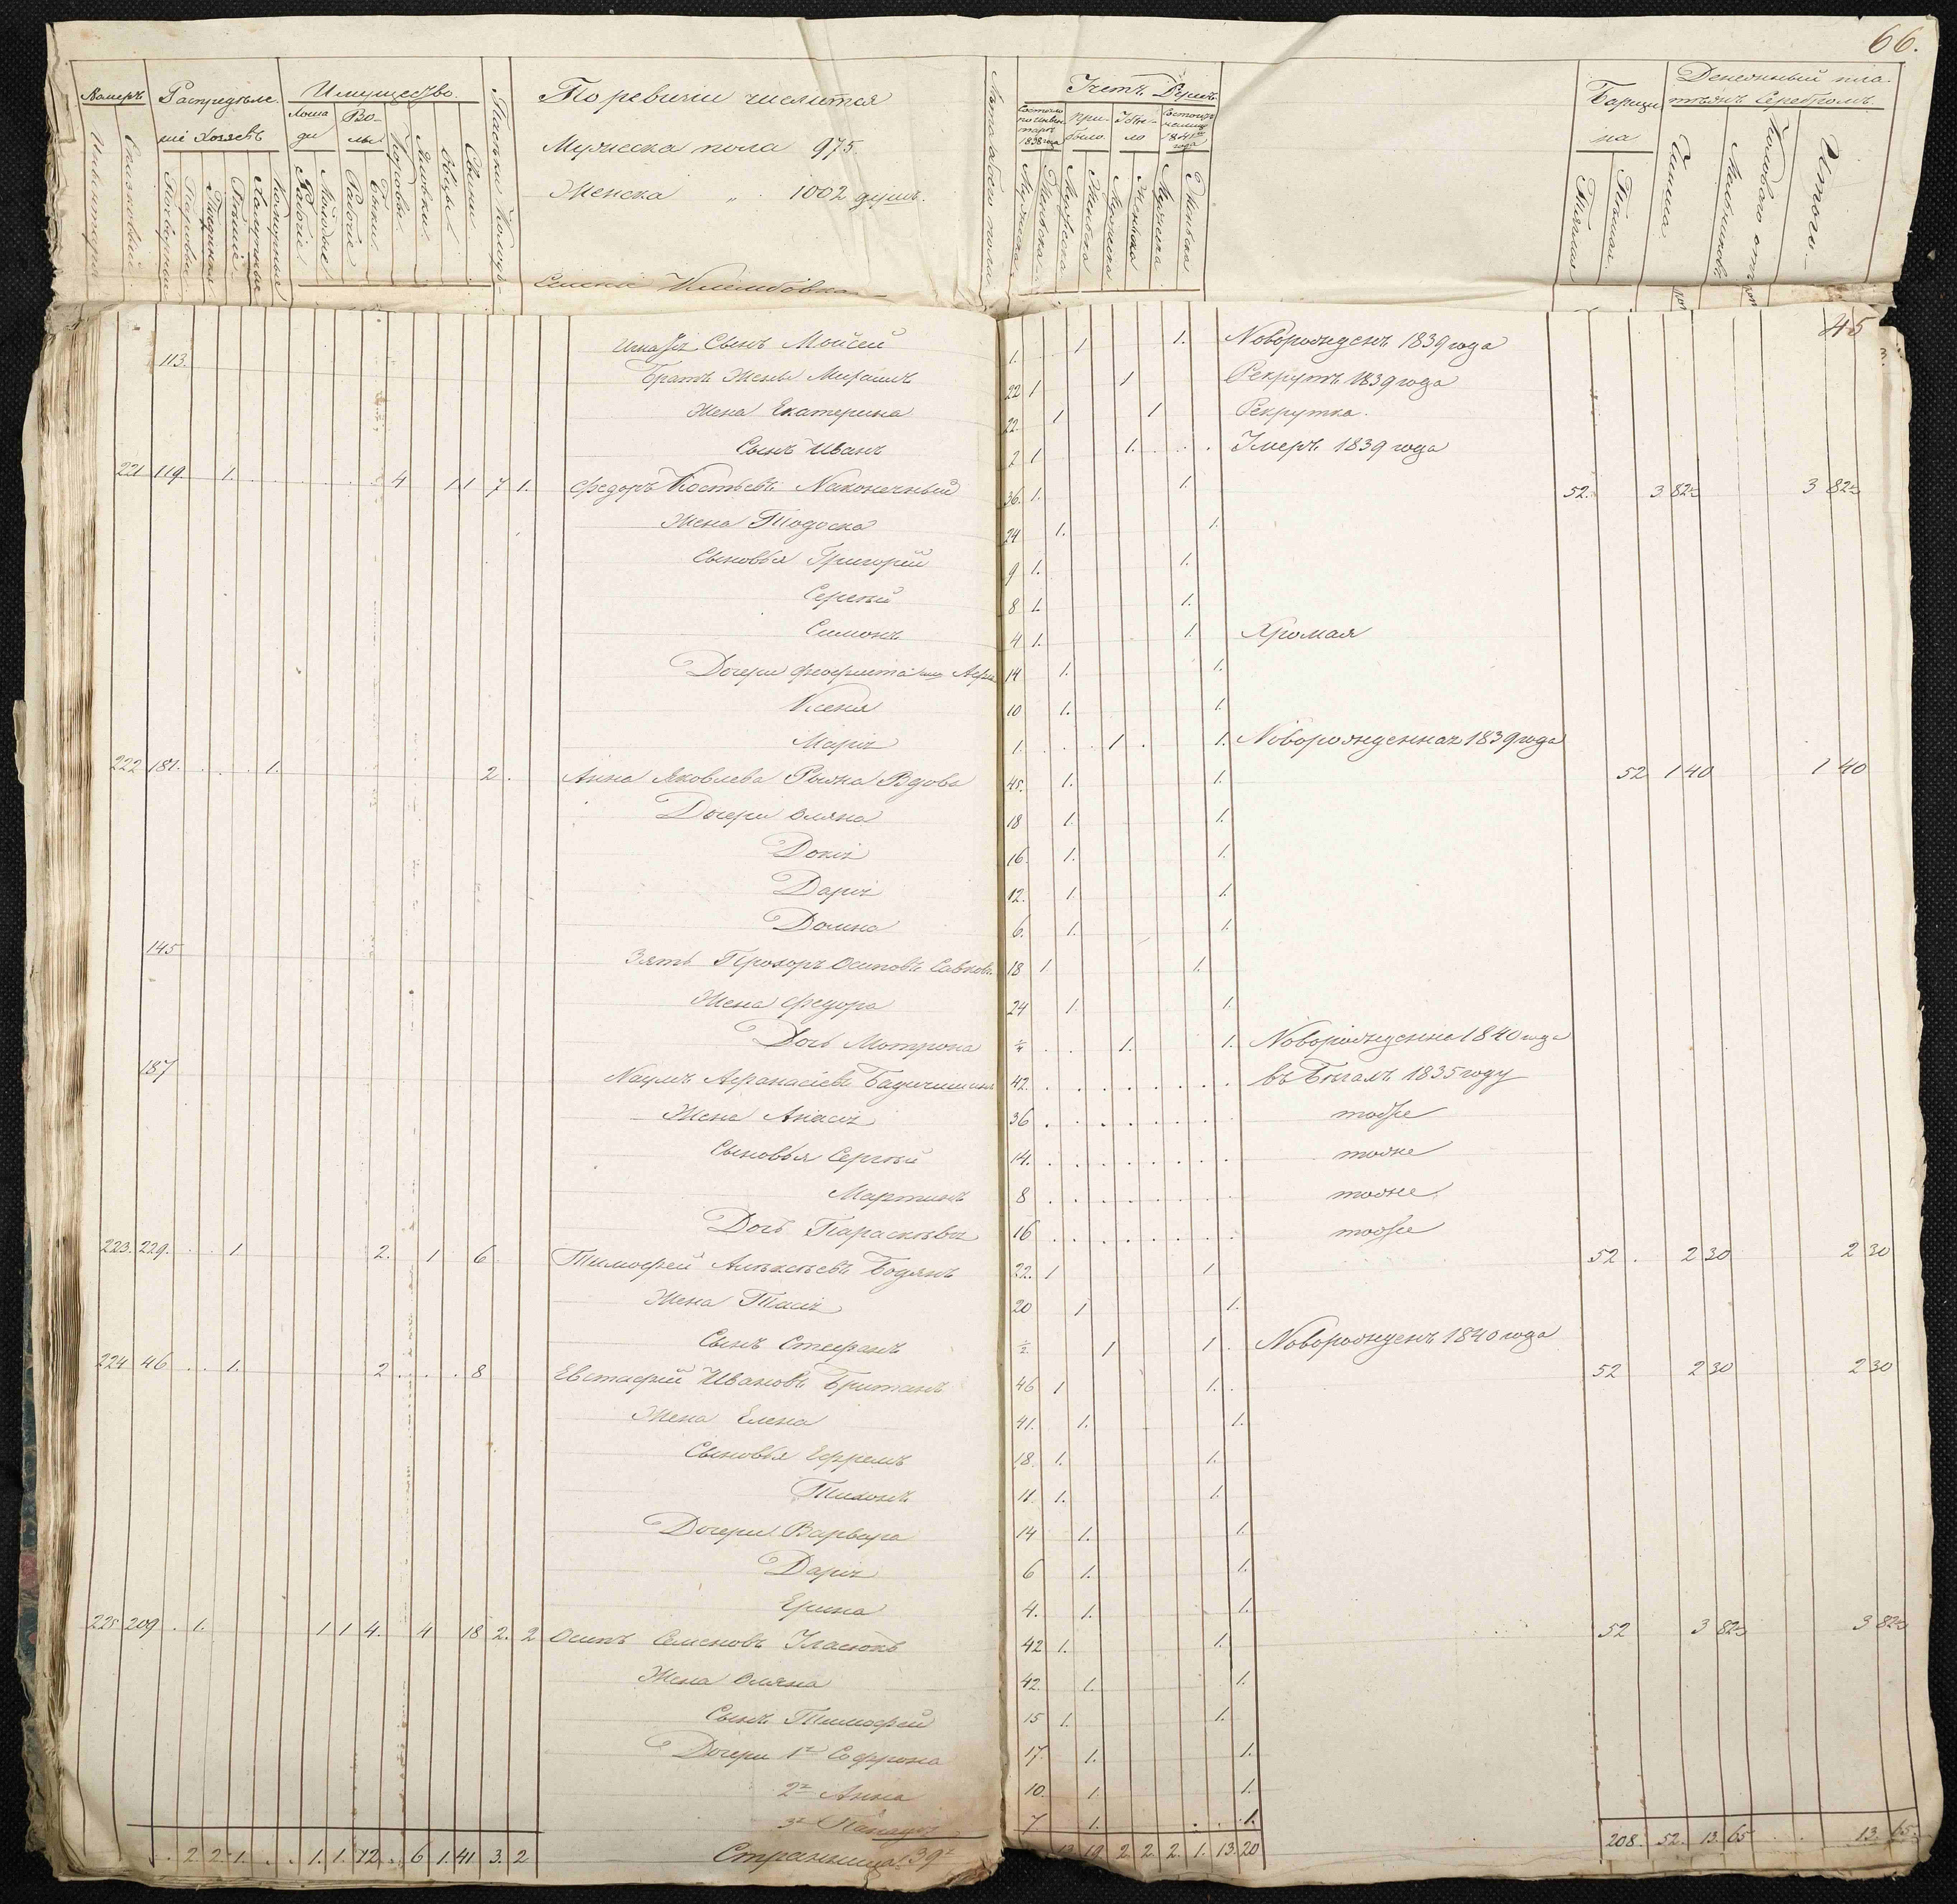 66.
Номеръ Распредѣле- Имущество По ревизіи числится Учетъ Душъ Барщи- Денежный пла-
ніе Хозяевъ Лоша- Во- на тежъ Серебромъ.
ди лы
Мужеска пола 975.
Женска " 1002 душъ.
Состояло по инвентарю 1838 года при- было Убы- ло Состоитъ 1841 года
Инвентарн Списковый Тягловые Рабочіе Молодые Рабочіе Быки Коровы Яловки Овцы Свини
Мужеска Женска Мужеска Женска Мужеска Женска Мужеска Женска Тяглая Пѣшая Чинша Итого
45
Сынъ Мойсей 1. 1 1. Новорожденъ 1839 года
113. Братъ Жены Михаилъ 22 1 1 Рекрутъ 1839 года
Жена Екатерина 22. 1 1 Рекрутка.
Сынъ Иванъ 2 1 1. Умеръ 1839 года
221 119. 1. 4 11 7 1. Федоръ Костьевъ Наконечный 36. 1. 1. 52. 3 82½ 3 82½
Жена Тодоска 24 1. 1.
Сыновья Григорій 9 1. 1.
Сергѣй 8 1. 1.
Симонъ 4 1. 1. Хромая
Дочери 14 1. 1.
Ксенія 10 1. 1.
Марія 1. 1. 1. Новорожденная 1839 года
222 181. 1. 2. Анна Яковлева Вдова 45. 1. 1. 52 1 40 1 40
Дочери Оляна 18 1. 1.
Докія 16. 1. 1.
Дарія 12. 1. 1.
Домна 6. 1. 1.
145 Зять Прохоръ Осиповъ 18 1. 1.
Жена Федора 24 1. 1.
Дочь Мотрона 1. 1. Новорожденна 1840 года
187 Наумъ Афанасіевъ 42. въ Бѣгахъ 1835 году
Жена Анасія 36 тоже
Сыновья Сергѣй 14. тоже
Мартинъ 8 тоже
Дочь Параскѣвія 16 тоже
223. 229. 1 2. 1 6 Тимофей Алексѣевъ Бодянъ 22. 1 1 52. 2 30 2 30
Жена Тасія 20 1 1.
Сынъ Стефанъ ½ 1 1. Новорожденъ 1840 года
224 46 1. 2 8 Евстафій Ивановъ Британъ 46 1 1. 52 2 30 2 30
Жена Елена 41. 1. 1.
Сыновья Ефремъ 18. 1. 1.
Тихонъ 11. 1. 1.
Дочери Варвара 14 1. 1.
Дарія 6 1. 1.
Ерина 4. 1. 1.
225 209 1. 1 1 4. 4 18 2. 2 Осипъ Семеновъ 42 1. 1. 52 3 82½ 3 82½
Жена Оляна 42. 1. 1.
Сынъ Тимофей 15 1. 1.
Дочери 1я Софрона 17. 1. 1.
2я Анна 10. 1. 1.
3я 7 1. 1.
2 2 1. 1. 1. 12 6 1. 41 3. 2 Страница 39я 13 19 2. 2. 2. 1. 13. 20 208. 52. 13. 65 13. 65.